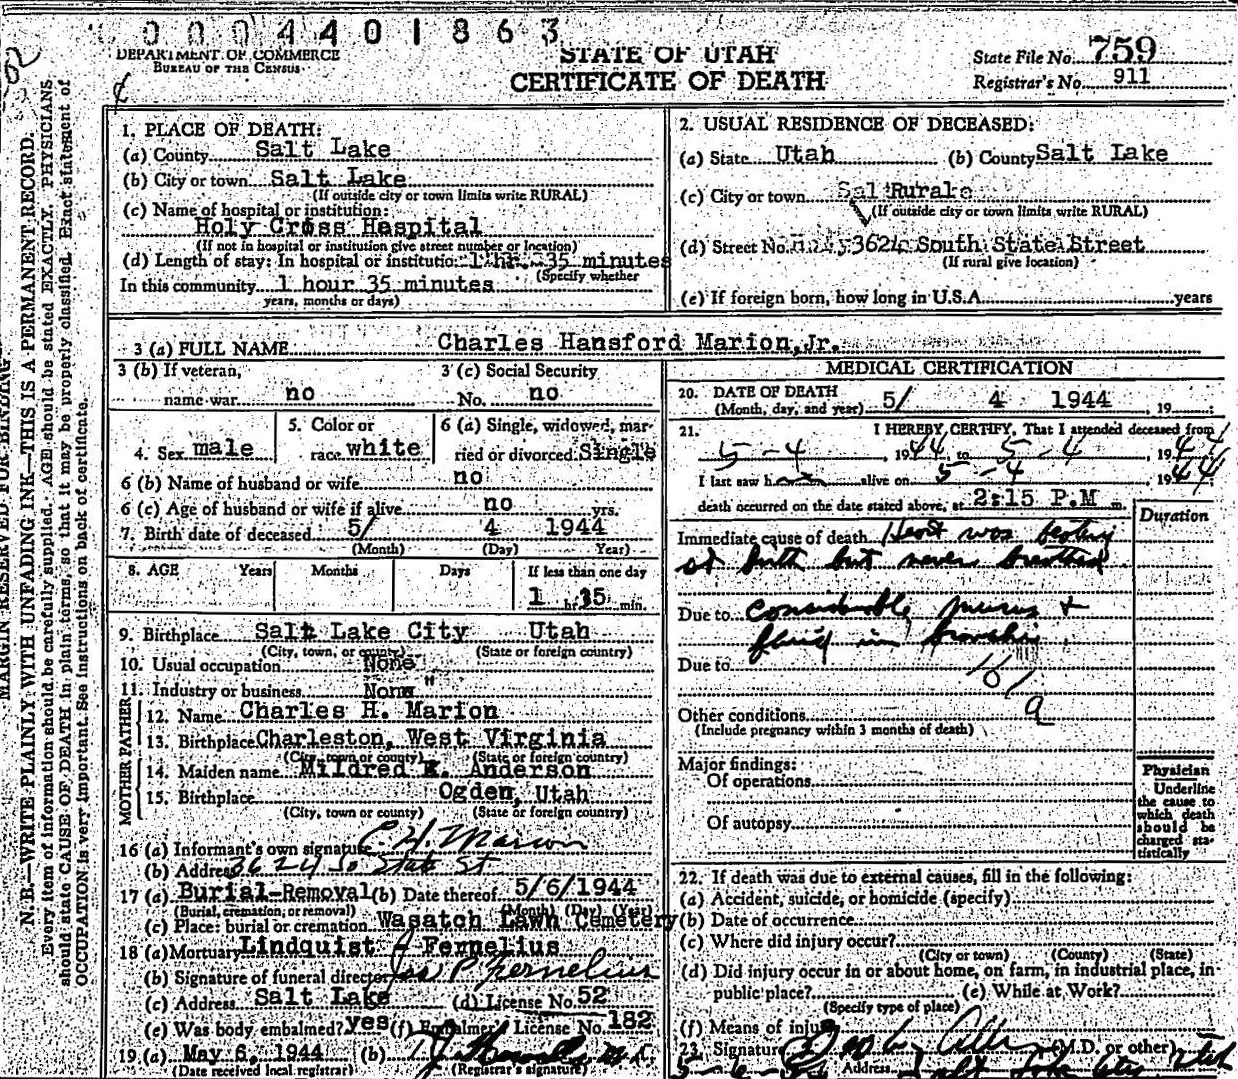 0004401863
DEPARTMENT OF COMMERCE
BUREAU OF THE CENSUS
STATE OF UTAH
CERTIFICATE OF DEATH
State File No. 759
Registrar's No. 911
MARGIN RESERVED FOR BINDING
N. B.—WRITE PLAINLY WITH UNFADING INK—THIS IS A PERMANENT RECORD.
Every item of information should be carefully supplied. AGE should be stated EXACTLY. PHYSICIANS
should state CAUSE OF DEATH in plain terms, so that it may be properly classified. Exact statement of
OCCUPATION is very important. See instructions on back of certificate.
1. PLACE OF DEATH:
(a) County Salt Lake
(b) City or town Salt Lake
(If outside city or town limits write RURAL)
(c) Name of hospital or institution:
Holy Cross Hospital
(If not in hospital or institution give street number or location)
(d) Length of stay: In hospital or institution 1 hr. 35 minutes
(Specify whether
In this community 1 hour 35 minutes
years, months or days)
2. USUAL RESIDENCE OF DECEASED:
(a) State Utah (b) County Salt Lake
(c) City or town Rural
(If outside city or town limits write RURAL)
(d) Street No. 3624 South State Street
(If rural give location)
(e) If foreign born, how long in U.S.A. years
3 (a) FULL NAME Charles Hansford Marion, Jr.
3 (b) If veteran,
name war no
3 (c) Social Security
No. no
4. Sex male
5. Color or
race white
6 (a) Single, widowed, mar-
ried or divorced Single
6 (b) Name of husband or wife no
6 (c) Age of husband or wife if alive no yrs.
7. Birth date of deceased 5/ 4 1944
(Month) (Day) Year)
8. AGE Years Months Days If less than one day
1 hr. 35 min.
9. Birthplace Salt Lake City Utah
(City, town, or county) (State or foreign country)
10. Usual occupation None
11. Industry or business None "
FATHER
12. Name Charles H. Marion
13. Birthplace Charleston, West Virginia
(City, town or county) (State or foreign country)
MOTHER
14. Maiden name Mildred K. Anderson
15. Birthplace Ogden, Utah
(City, town or county) (State or foreign country)
16 (a) Informant's own signature C. H. Marion
(b) Address 3624 So State St
17 (a) Burial-Removal (b) Date thereof 5/6/1944
(Burial, cremation, or removal) (Month) (Day) (Year)
(c) Place: burial or cremation Wasatch Lawn Cemetery
18 (a) Mortuary Lindquist & Fernelius
(b) Signature of funeral director Jas P. Fernelius
(c) Address Salt Lake (d) License No. 52
(e) Was body embalmed? yes (f) Embalmer License No. 182
19. (a) May 6, 1944 (b)
(Date received local registrar) (Registrar's signature)
MEDICAL CERTIFICATION
20. DATE OF DEATH
(Month, day, and year) 5/ 4 1944, 19
21. I HEREBY CERTIFY, That I attended deceased from
5-4, 1944 to 5-4, 1944
I last saw h alive on 5-4 1944
death occurred on the date stated above, at 2:15 P.M m.
Duration
Immediate cause of death Heart was beating
at birth but never breathed
Due to considerable mucus +
fluid in bronchi
Due to
161
a
Other conditions
(Include pregnancy within 3 months of death)
Major findings:
Of operations
Of autopsy
Physician
Underline
the cause to
which death
should be
charged sta-
tistically
22. If death was due to external causes, fill in the following:
(a) Accident, suicide, or homicide (specify)
(b) Date of occurrence
(c) Where did injury occur?
(City or town) (County) (State)
(d) Did injury occur in or about home, on farm, in industrial place, in
public place? (e) While at Work?
(Specify type of place)
(f) Means of injury
23. Signature (M.D. or other)
Address Salt Lake City, Utah